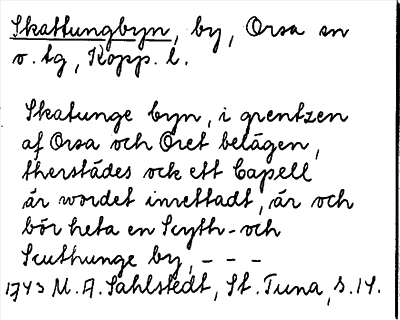 Skattungbyn, by, Orsa sn
o. tg, Kopp. l.
Skatunge byn, i grentzen
af Orsa och Oret belägen,
therstädes ock ett Capell
är wordet inrettadt, är och
bör heta en Scyth- och
Scuthunge by, – – –
1743 M. A. Sahlstedt, St. Tuna, s. 14.